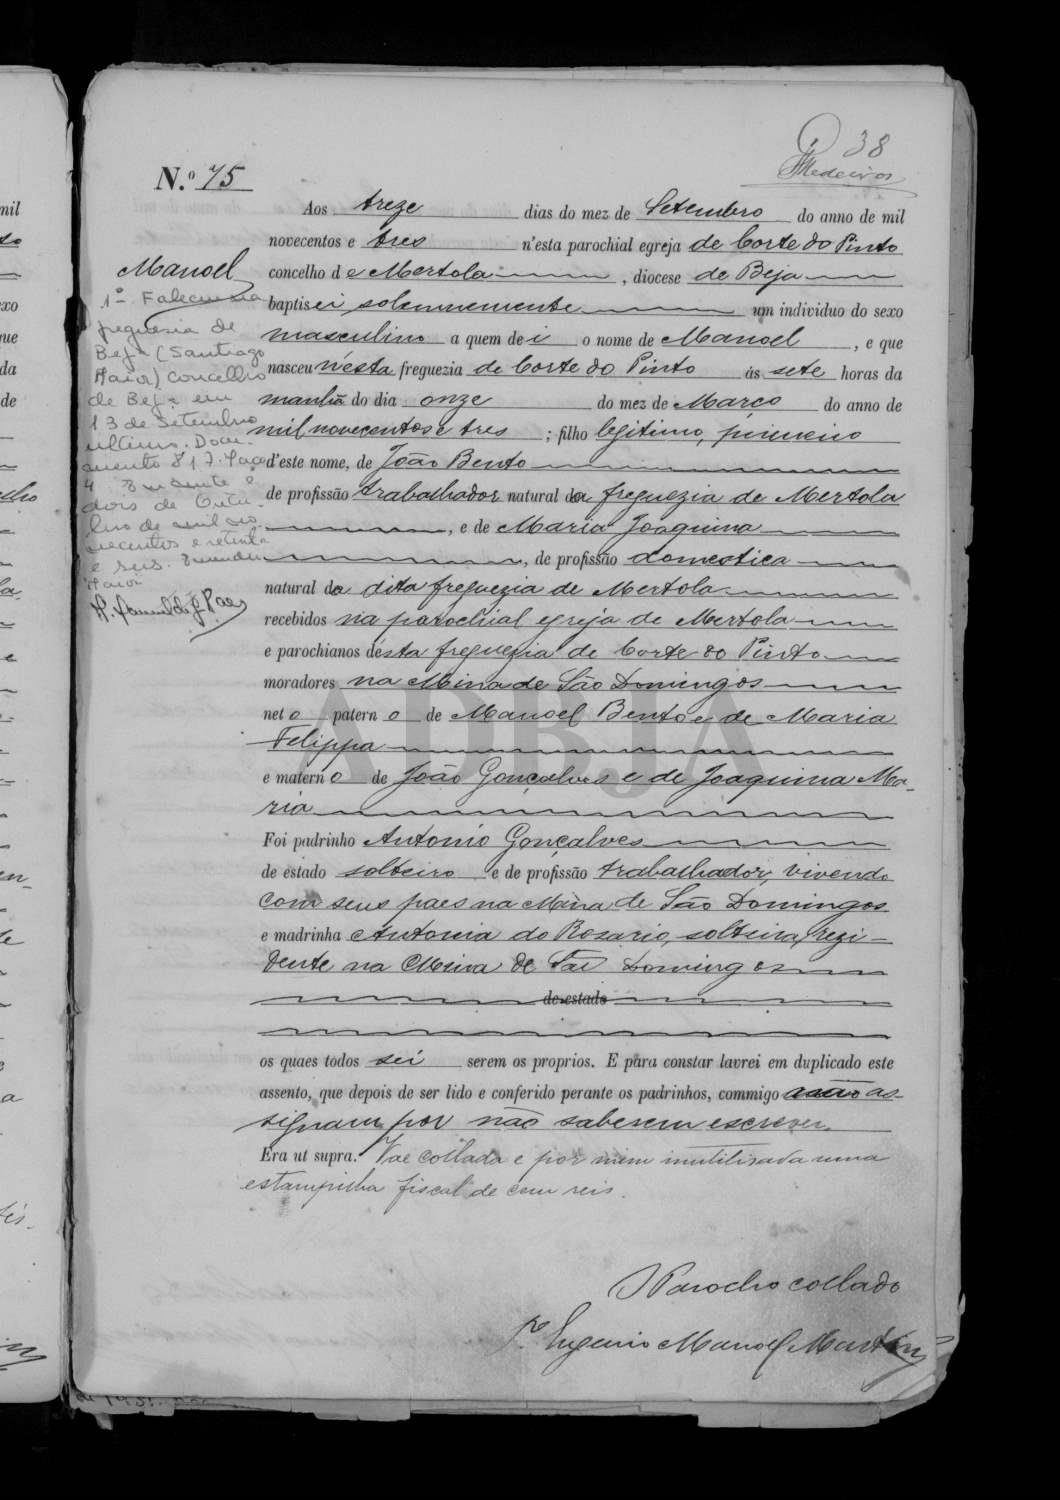 38
Medeiros
N.º 75
Aos treze dias do mez de Setembro do anno de mil
novecentos e tres n'esta parochial egreja de Corte do Pinto
concelho de Mertola, diocese de Beja
baptisei solemnemente um individuo do sexo
masculino a quem dei o nome de Manoel, e que
nasceu n'esta freguezia de Corte do Pinto ás sete horas da
manhã do dia onze do mez de Março do anno de
mil novecentos e tres; filho legitimo, primeiro
d'este nome, de João Bento
de profissão trabalhador natural da freguezia de Mertola
, e de Maria Joaquina
, de profissão domestica
natural da dita freguezia de Mertola
recebidos na parochial egreja de Mertola
e parochianos desta freguezia de Corte do Pinto
moradores na Mina de São Domingos
neto paterno de Manoel Bento e de Maria
Felippa
e materno de João Gonçalves e de Joaquina Ma-
ria
Foi padrinho Antonio Gonçalves
de estado solteiro e de profissão trabalhador, vivendo
com seus paes na Mina de São Domingos
e madrinha Antonia do Rozario, solteira, rezi-
dente na Mina de São Domingos
de estado
os quaes todos sei serem os proprios. E para constar lavrei em duplicado este
assento, que depois de ser lido e conferido perante os padrinhos, commigo não as-
signam por não saberem escrever.
Era ut supra. Vae collada e por mim inutilisada uma
estampilha fiscal de cem reis.
O Parocho collado
P.e Eugenio Manoel Martins
Manoel
1º Faleceu na
freguesia de
Beja (Santiago
Maior) concelho
de Beja em
13 de Setembro
ultimo. Docu-
mento 817. Maço
4
dois de Outu-
bro de mil no-
vecentos e setenta
e seis.
ADBJA